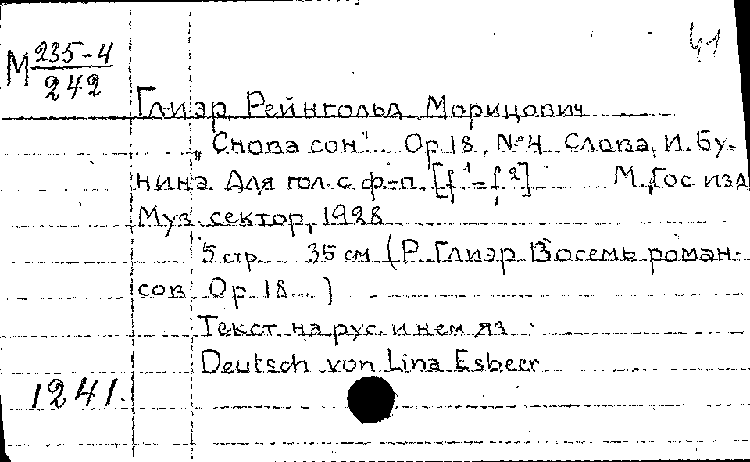 41
М 235-4
242
Глиэр Рейнгольд Морицович
„Снова сон" Op 18, №4 Слова, И. Бу-
нина. Для гол. с ф-п. [f¹-f²] М., Гос изд
Муз. сектор, 1928
5 стр. 35 см (Р. Глиэр Восемь роман-
сов Op. 18 )
Текст на рус. и нем яз.
Deutsch von Lina Esbeer
1241.